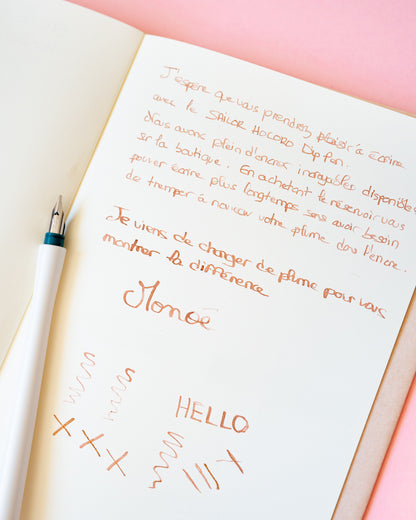 J'espère que vous prendrez plaisir à écrire
avec le SAILOR HOCORO Dip Pen.
Nous avons plein d'encres incroyables disponibles
sur la boutique. En achetant le réservoir vous
pouvez écrire plus longtemps sans avoir besoin
de tremper à nouveau votre plume dans l'encre.
Je viens de changer de plume pour vous
montrer la différence
Monoé
HELLO